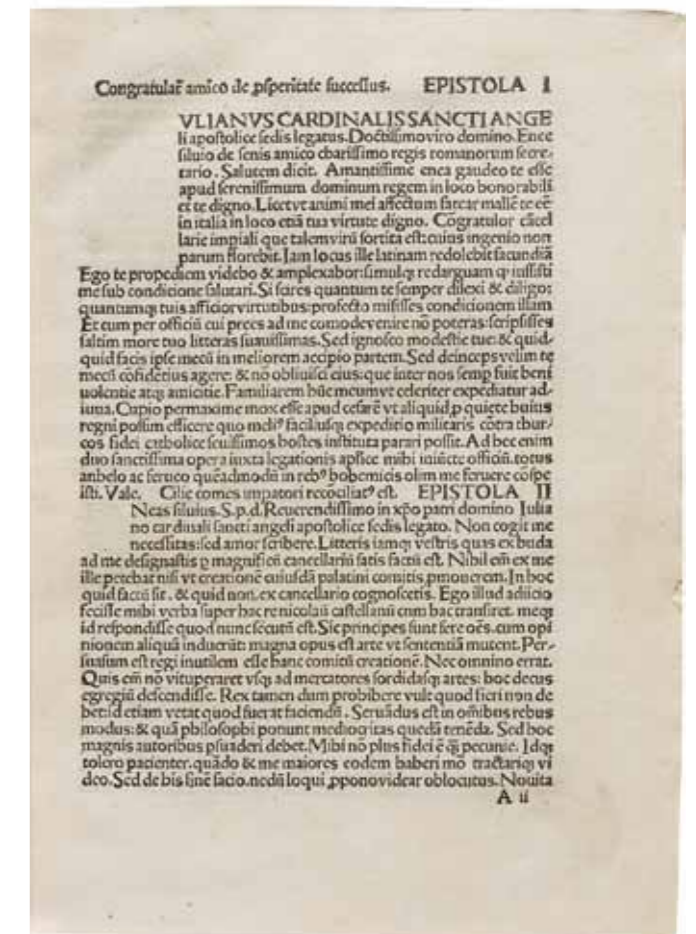 Congratulat̃ amico de ꝓsperitate successus. EPISTOLA I
VLIANVS CARDINALIS SANCTI ANGE
li apostolice sedis legatus. Doctissimo viro domino. Enee
siluio de senis amico charissimo regis romanorum secre-
tario. Salutem dicit. Amantissime enea gaudeo te esse
apud serenissimum dominum regem in loco honorabili
et te digno. Licet vt animi mei affectum fatear mallē te eē
in italia in loco etiā tua virtute digno. Cōgratulor cācel
larie impiali que talem virū sortita est: cuius ingenio non
parum florebit. Jam locus ille latinam redolebit facundiā
Ego te propediem videbo & amplexabor: simulqꝫ redarguam ꝙ iussisti
me sub condicione salutari. Si scires quantum te semper dilexi & diligo:
quantumqꝫ tuis afficior virtutibus: profecto misisses condicionem illam
Et cum per officiū cui prees ad me comode venire nō poteras: scripsisses
saltim more tuo litteras suauissimas. Sed ignosco modestie tue: & quid-
quid facis ipse mecū in meliorem accipio partem. Sed deinceps velim te
mecū cōfidētius agere: & nō obliuisci eius: que inter nos semp fuit beni
uolentie atqꝫ amicitie. Familiarem hūc meum vt celeriter expediatur ad-
iuua. Cupio permaxime mox esse apud cesarē vt aliquid ꝓ quiete huius
regni possim efficere quo meliꝰ faciliusqꝫ expeditio militaris cōtra thur-
cos fidei catholice seuissimos hostes instituta parari possit. Ad hec enim
duo sanctissima opera iuxta legationis aplice mihi iniūcte officiū. totus
anhelo ac ferueo quēadmodū in rebꝰ bohemicis olim me feruere cōspe
isti. Vale. Cilie comes impatori recōciliatꝰ est. EPISTOLA II
Neas siluius. S. p. d. Reuerendissimo in xp̄o patri domino Iulia
no cardinali sancti angeli apostolice sedis legato. Non cogit me
necessitas: sed amor scribere. Litteris iamqꝫ vestris quas ex buda
ad me designastis ꝑ magnificū cancellariū satis factū est. Nihil em̄ ex me
ille petebat nisi vt creationē cuiusdā palatini comitis ꝓmouerem. In hoc
quid factū sit. & quid non. ex cancellario cognoscetis. Ego illud adiicio
fecisse mihi verba super hac re nicolaū castellanū cum hac transiret. meqꝫ
id respondisse quod nunc secutū est. Sic principes sunt fere oēs. cum opi
nionem aliquā induerūt: magna opus est arte vt sententiā mutent. Per-
suasum est regi inutilem esse hanc comitū creationē. Nec omnino errat.
Quis em̄ nō vituperaret vsqꝫ ad mercatores sordidasqꝫ artes: hoc decus
egregiū descendisse. Rex tamen dum prohibere vult quod fieri non de
bet: id etiam vetat quod fuerat faciendū. Seruādus est in om̄ibus rebus
modus: & quā philosophi ponunt mediocritas quedā tenēda. Sed hoc
magnis autoribus psuaderi debet. Mihi nō plus fidei ē q̄ꝫ pecunie. Idqꝫ
tolero pacienter. quādo & me maiores eodem haberi mō tractariqꝫ vi
deo. Sed de his finē facio. nedū loqui ꝓpono videar oblocutus. Nouita
A ii